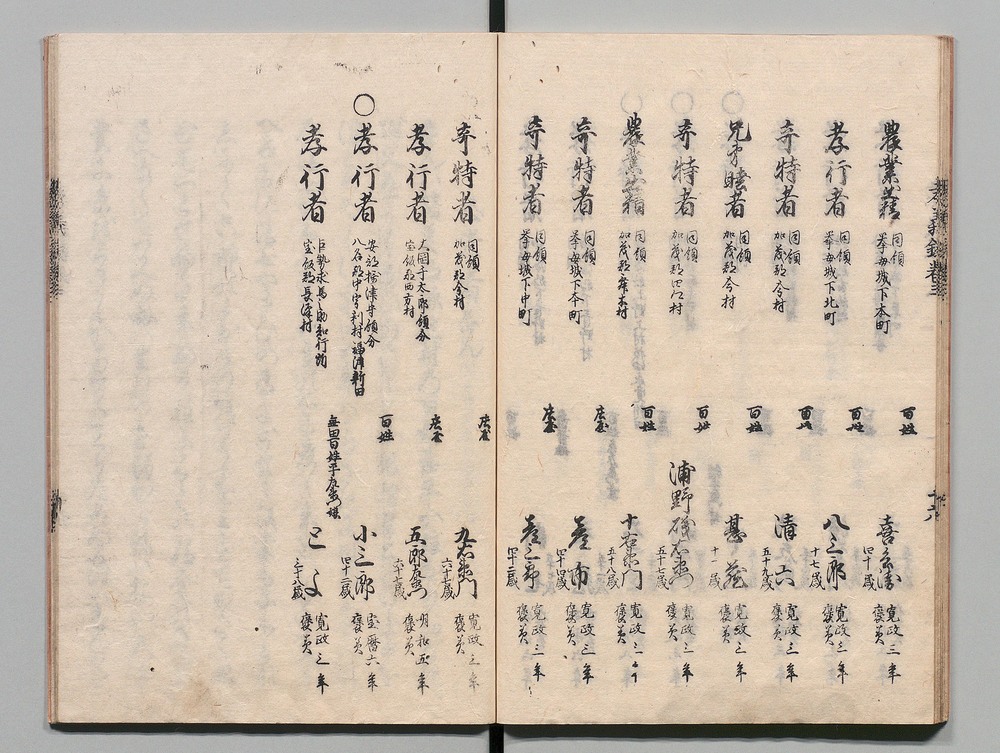 農業出精 同領 挙母城下本町 百姓 喜 四十歳 寛政三年 褒美
孝行者 同領 挙母城下北町 百姓 八三郎 十七歳 寛政三年 褒美
奇特者 同領 加茂郡今村 百姓 清六 五十九歳 寛政三年 褒美
○ 兄弟睦者 同領 加茂郡今村 百姓 甚蔵 十一歳 寛政三年 褒美
○ 奇特者 同領 加茂郡 村 百姓 浦野 五十七歳 寛政三年 褒美
○ 農業出精 同領 加茂郡 村 百姓 十右衛門 五十八歳 寛政三年 褒美
奇特者 同領 挙母城下本町 庄屋 市 四十四歳 寛政三年 褒美
奇特者 同領 挙母城下中町 庄屋 三郎 四十二歳 寛政三年 褒美
奇特者 同領 加茂郡今村 庄屋 九右衛門 六十七歳 寛政三年 褒美
孝行者 大岡 太郎領分 宝飯郡西 村 庄屋 五郎 六十六歳 明和五年 褒美
○ 孝行者 安部摂津守領分 八名郡中宇利村 福津新田 百姓 小三郎 四十二歳 宝暦六年 褒美
孝行者 巨勢 知行所 宝飯郡長沢村 無田百姓平左衛門娘 とよ 三十八歳 寛政三年 褒美
孝義録巻三
十六